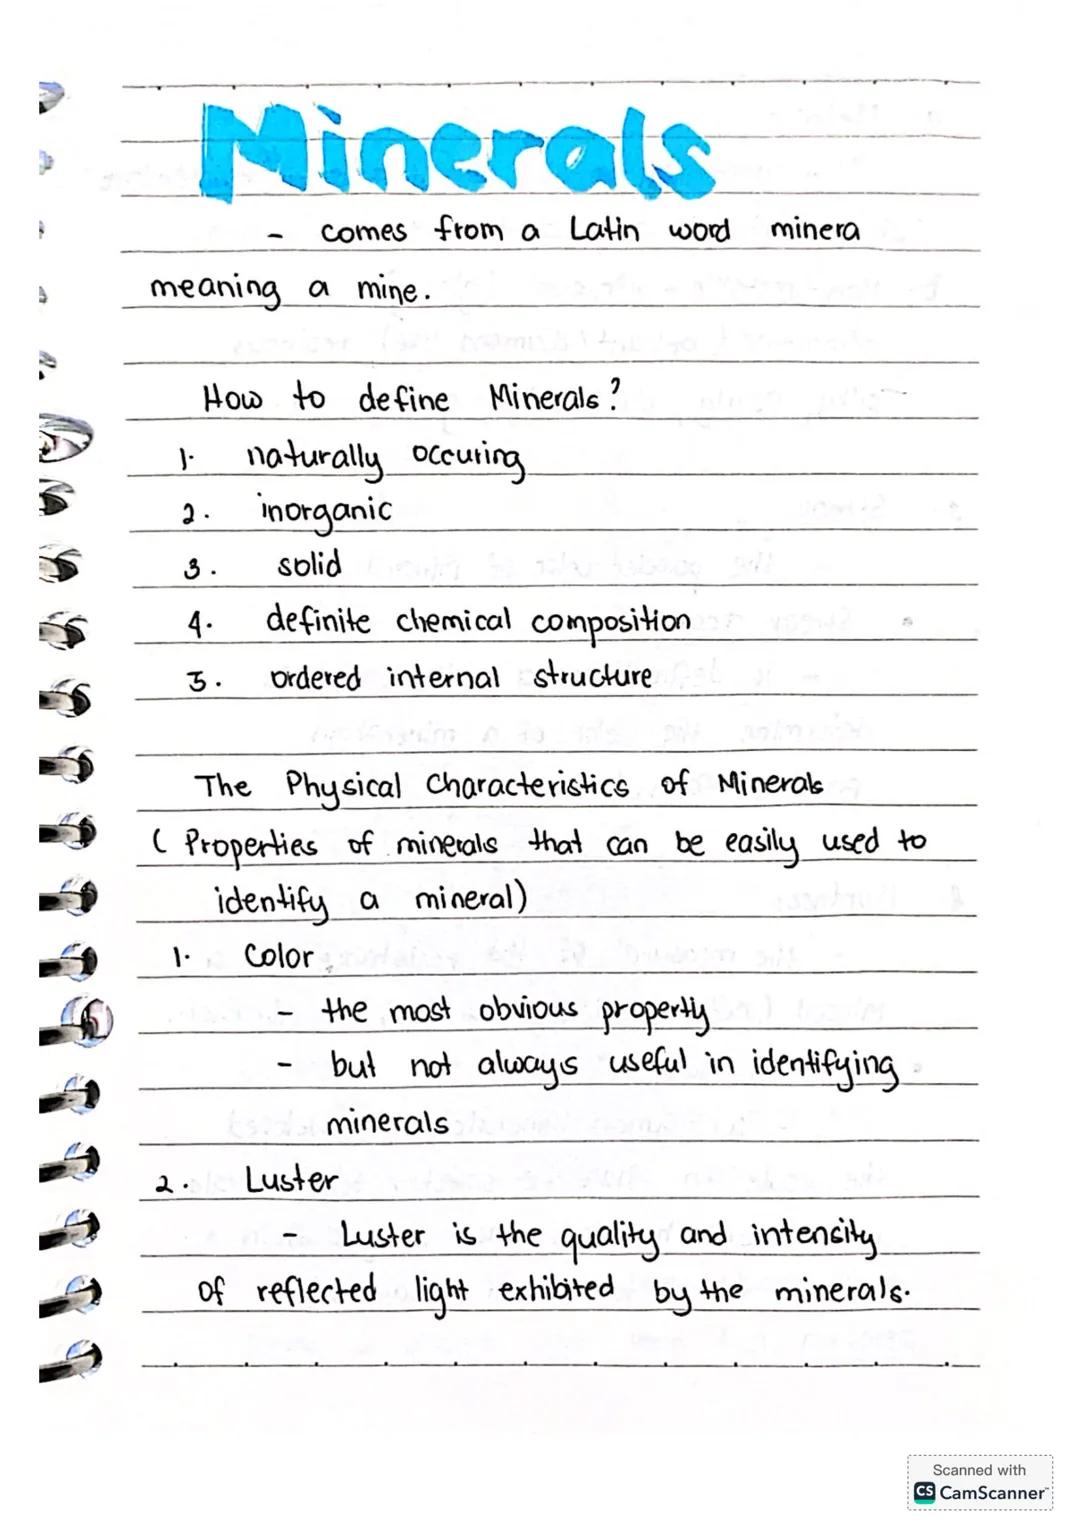 Minerals
- comes from a Latin word minera
meaning a mine.
How to define Minerals?
1. naturally occuring
2. inorganic
3. solid
4. definite chemical composition
5. ordered internal structure
The Physical Characteristics of Minerals
( Properties of minerals that can be easily used to
identify a mineral)
1. Color
- the most obvious property
- but not always useful in identifying
minerals
2. Luster
- Luster is the quality and intensity
of reflected light exhibited by the minerals.
Scanned with
CS CamScanner